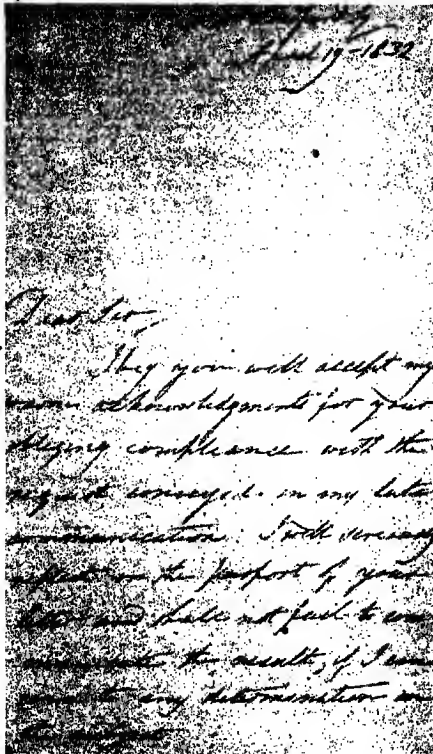 19 - 1832
Dear Sir,
I beg you will accept my
warm acknowledgments for your
obliging compliance with the
request conveyed in my late
communication. I will seriously
reflect on the purport of your
letter and shall not fail to com
municate the result, if I can
come to any determination on
the subject